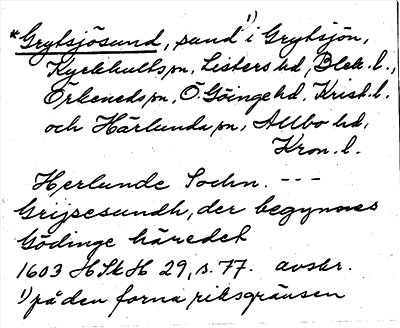 *Grytsjösund, sund ¹) i Grytsjön,
Kyrkhults sn, Listers hd, Blek. l.,
Örkeneds sn, Ö. Göinge hd, Krist. l.
och Härlunda sn, Allbo hd,
Kron. l.
Herlunde Sochn. ---
Grijsesundh, der begynnes
Gödinge häredet
1603 HSkH 29, s. 77. avskr.
¹) på den forna riksgränsen